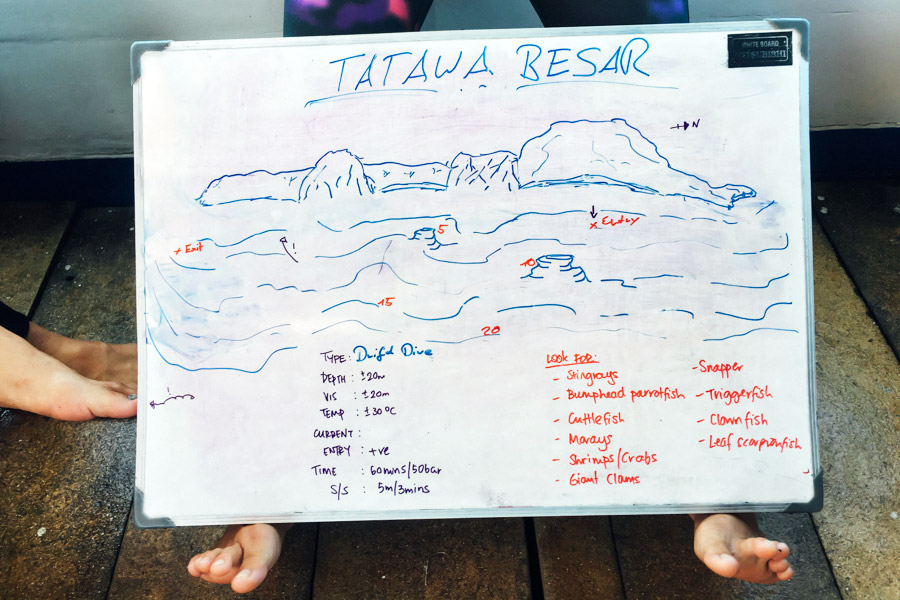 TATAWA BESAR
WHITE BOARD
MITSUBISHI
N
5
Entry
Exit
10
15
20
TYPE: Drift Dive
DEPTH: ±20m
VIS : ±20m
TEMP : ±30°C
CURRENT :
ENTRY : +ve
TIME : 60mns/50bar
S/S : 5m/3mins
Look FOR:
- Stingrays
- Bumphead parrotfish
- Cuttlefish
- Morays
- Shrimps/Crabs
- Giant Clams
- Snapper
- Triggerfish
- Clownfish
- Leaf scorpionfish